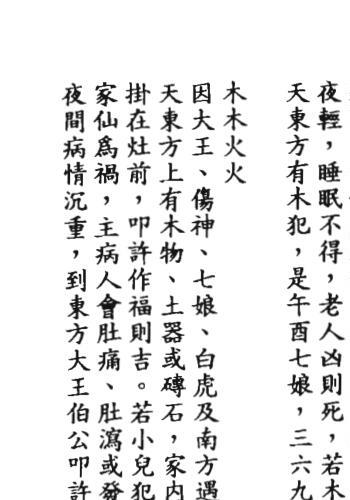 夜輕，睡眠不得，老人凶則死，若木
天東方有木犯，是午酉七娘，三六九
木木火火
因大王、傷神、七娘、白虎及南方遇
天東方上有木物、土器或磚石，家內
掛在灶前，叩許作福則吉。若小兒犯
家仙為禍，主病人會肚痛、肚瀉或發
夜間病情沉重，到東方大王伯公叩許